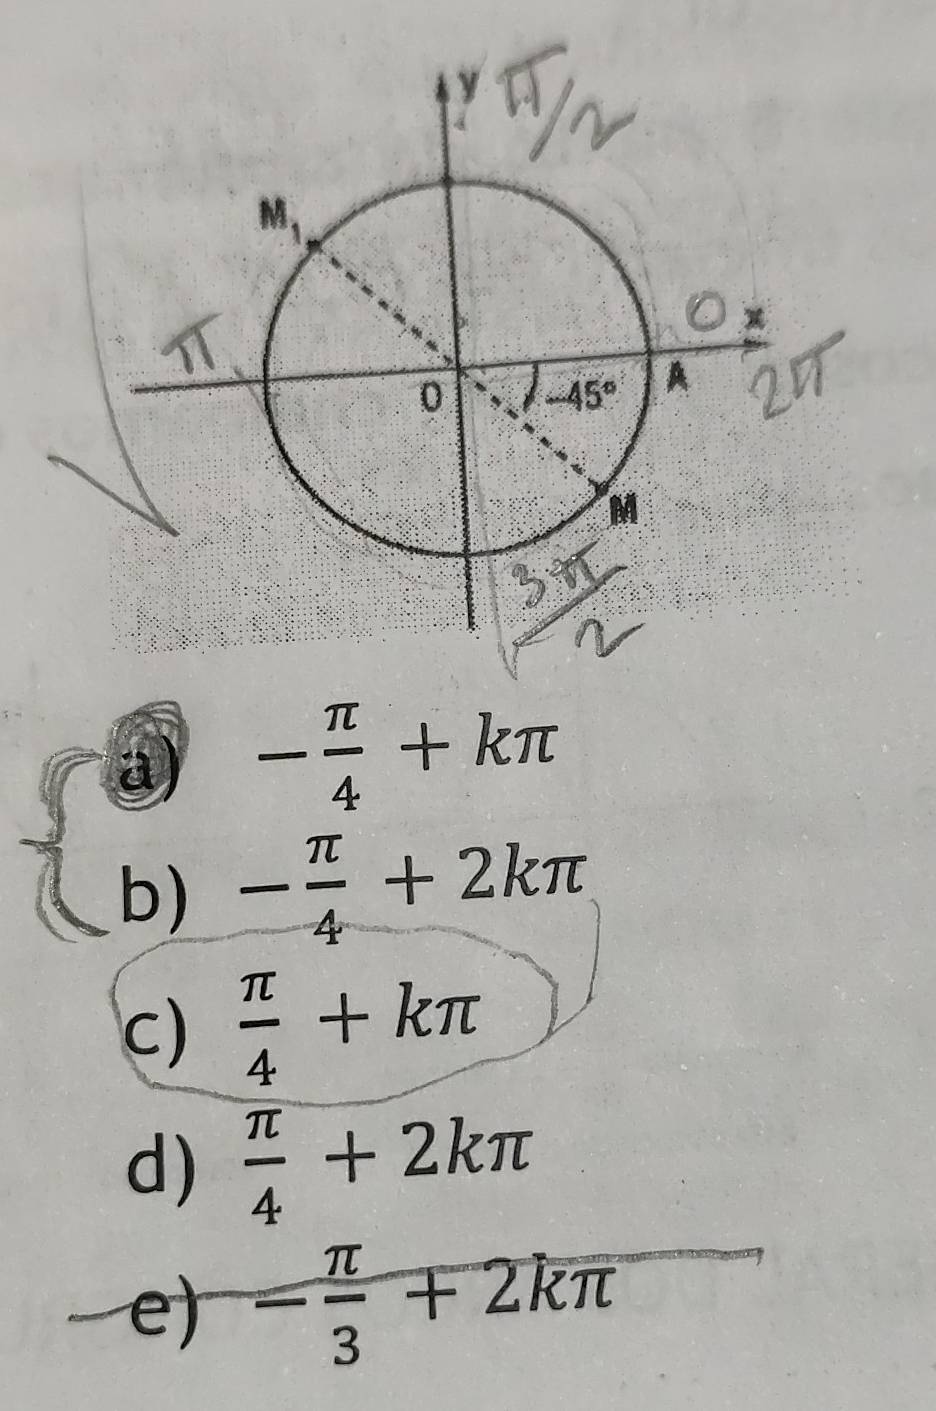 y π/2
M₁
π
0 x
2π
O -45° A
M
3π/2
a) -π/4 + kπ
b) -π/4 + 2kπ
c) π/4 + kπ
d) π/4 + 2kπ
e) -π/3 + 2kπ